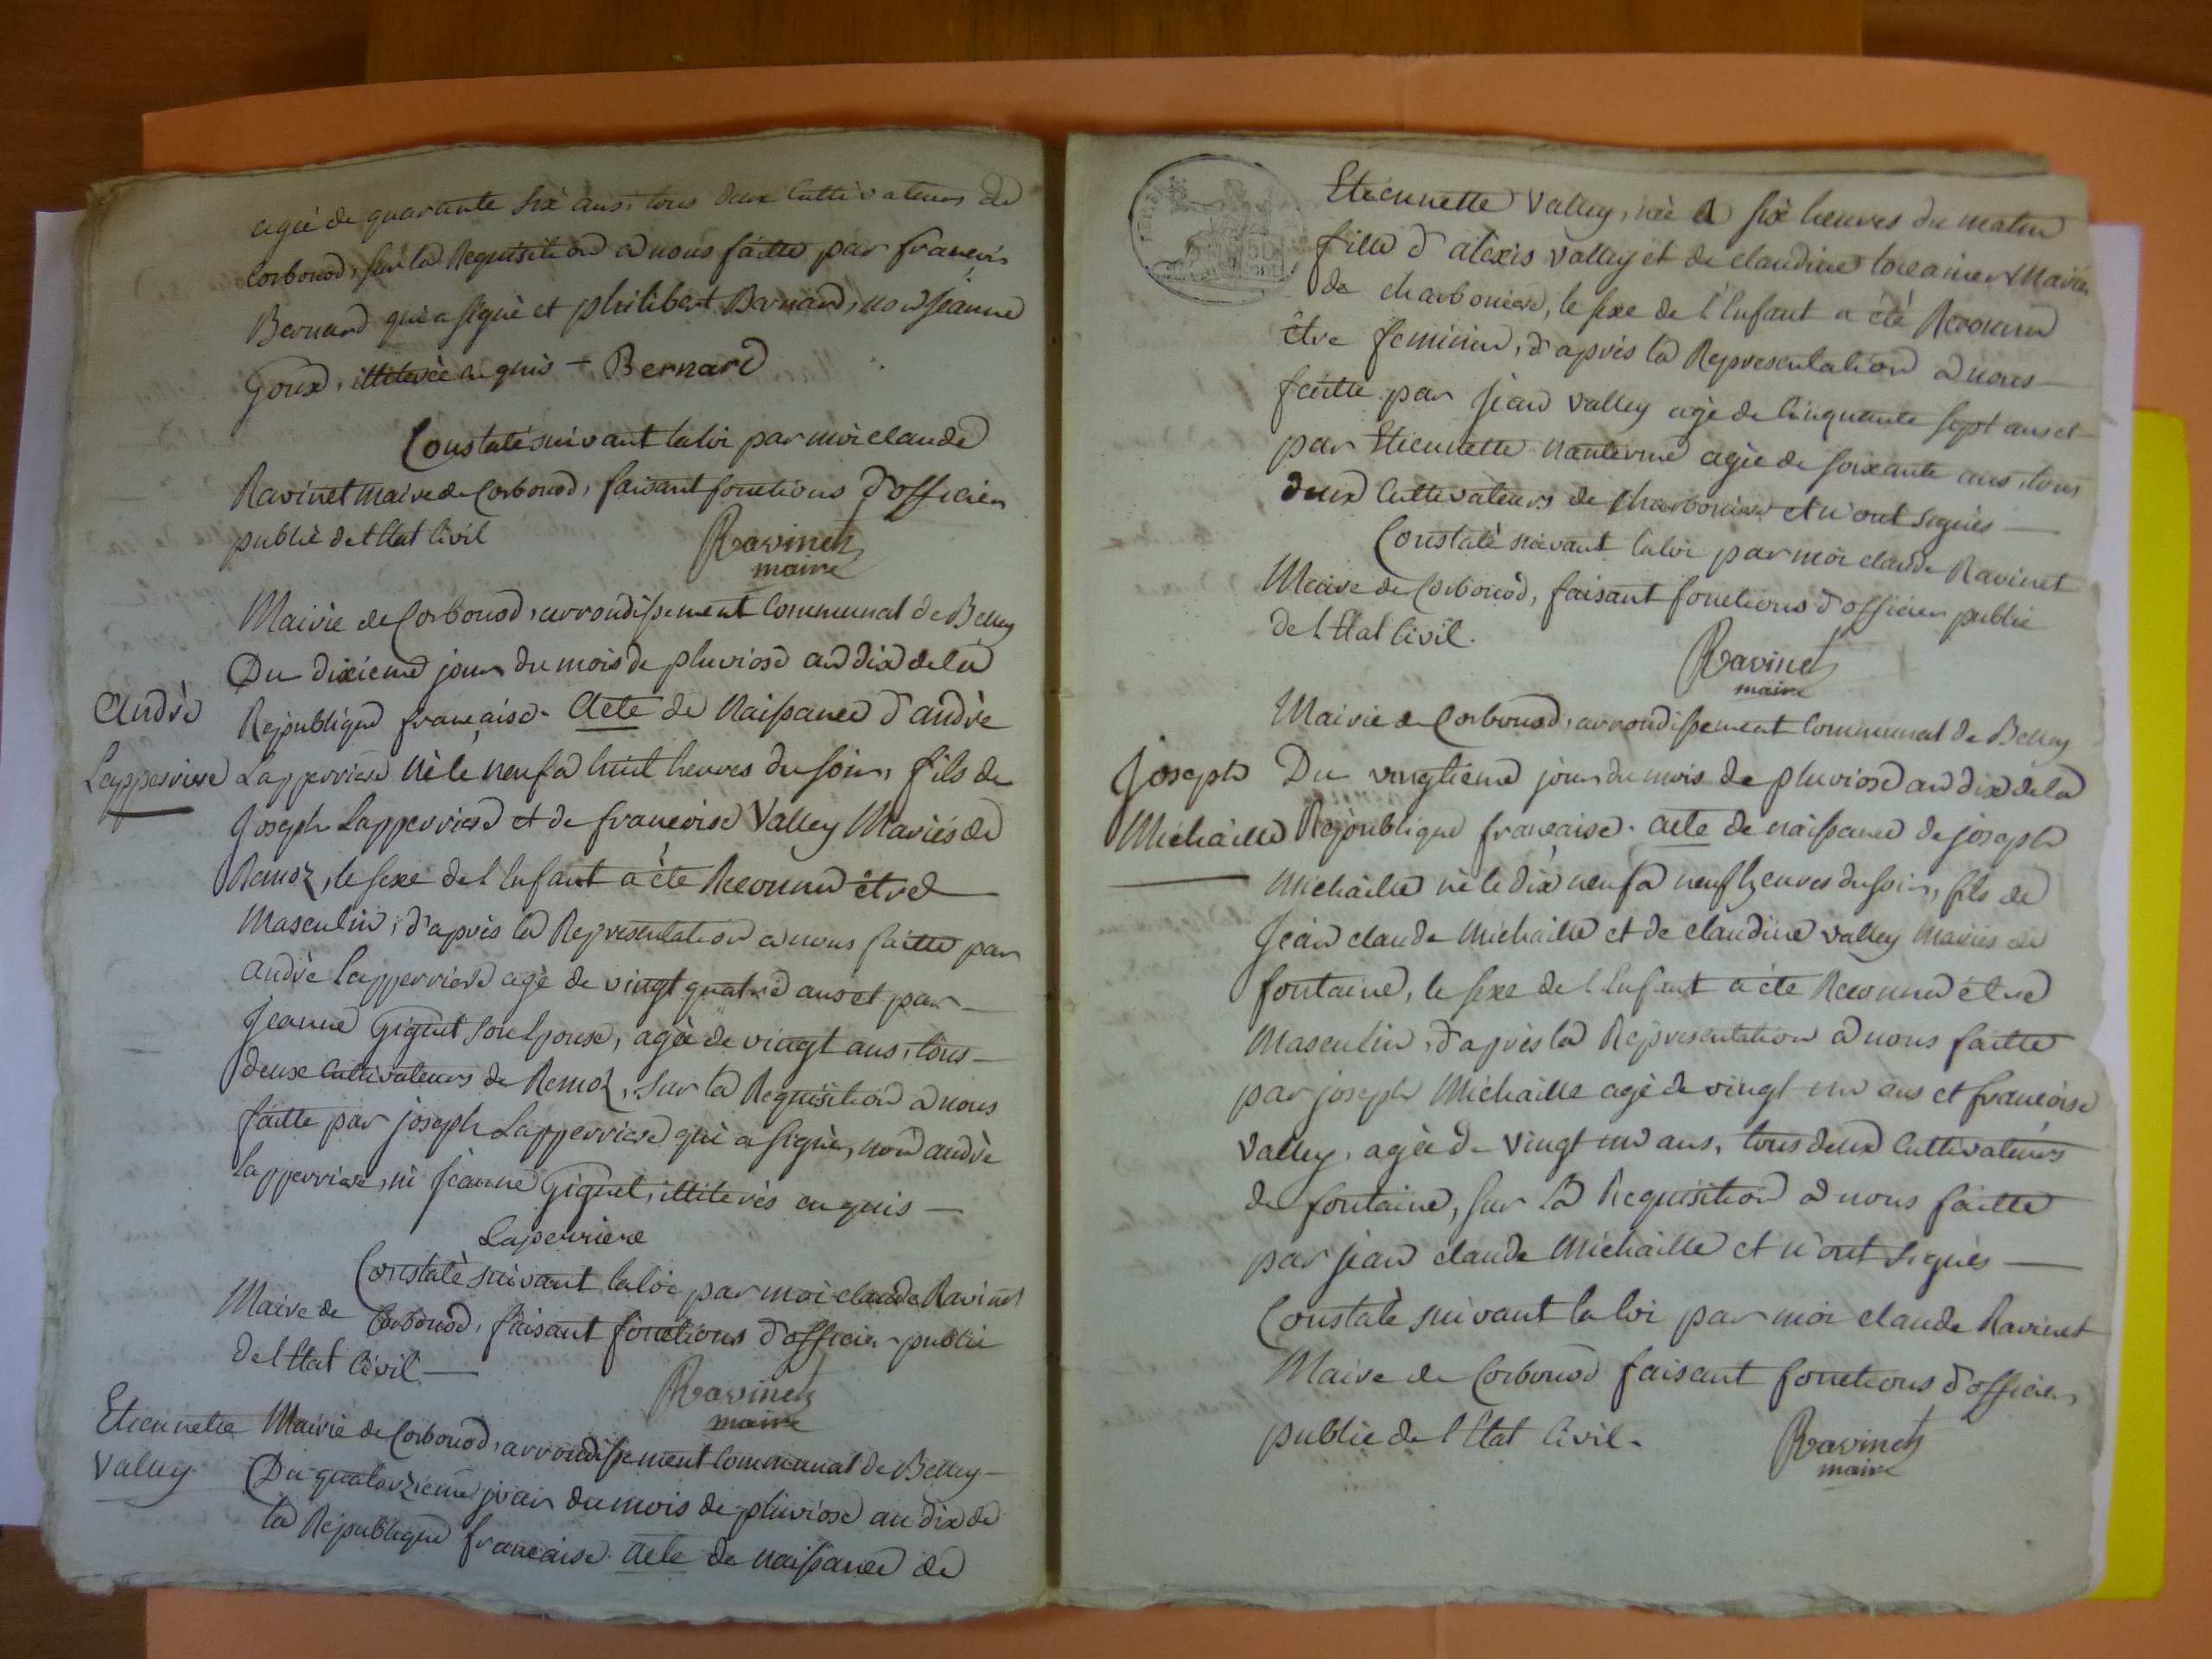 agée de quarante six ans, tous deux Cultivateurs de
Corbonod, sur la Requisition a nous faitte par francois
Bernard qui a signé et philibert Bernard, non jeanne
Goux, illiterée enquis + Bernard
Constaté suivant la loi par moi claude
Ravinet maire de Corbonod, faisant fonctions d'officier
public de l'Etat Civil
Ravinet
maire
Mairie de Corbonod, arrondissement Communal de Belley
Du dixieme jour du mois de pluviose an dix de la
André
Republique francaise. Acte de Naissance d'andrè
Lapperriere
Lapperriere nè le neuf a huit heures du soir, fils de
Joseph Lapperriere et de francoise Valley Mariés de
Remoz, le sexe de l'Enfant a été Reconnu être
Masculin, d'après la Representation a nous faitte par
andrè Lapperriere agé de vingt quatre ans et par
Jeanne Giguet son Epouse, agée de vingt ans, tous
deux Cultivateurs de Remoz, sur la Requisition a nous
faitte par joseph Lapperriere qui a signè, non andrè
Lapperriere, ni Jeanne Giguet, illiterés enquis
Laperrière
Constatè suivant la loi par moi claude Ravinet
Maire de Corbonod, faisant fonctions d'officier public
de l'Etat Civil
Ravinet
maire
Etiennette
Mairie de Corbonod, arrondissement Communal de Belley
Valley
Du quatorzieme jour du mois de pluviose an dix de
la Republique francaise. Acte de Naissance de
Etiennette Valley, née a six heures du matin
fille d'alexis Valley et de claudine Mariés
de charboniere, le sexe de l'Enfant a été Reconnu
être feminin, d'après la Representation a nous
faitte par Jean Valley agé de Cinquante sept ans et
par Etiennette Nanterme agée de soixante ans, tous
deux Cultivateurs de Charboniere et n'ont signés
Constatè suivant la loi par moi claude Ravinet
Maire de Corbonod, faisant fonctions d'officier public
de l'Etat Civil.
Ravinet
maire
Mairie de Corbonod, arrondissement Communal de Belley
Joseph
Du vingtieme jour du mois de pluviose an dix de la
Michaille
Republique francaise. acte de naissance de joseph
Michaille nè le dix neuf a neuf heures du soir, fils de
Jean claude Michaille et de claudine Valley Mariés de
fontaine, le sexe de l'Enfant a été Reconnu être
Masculin, d'après la Representation a nous faitte
par joseph Michaille agé de vingt un ans et francoise
Valley, agée de Vingt un ans, tous deux Cultivateurs
de fontaine, sur la Requisition a nous faitte
par jean claude Michaille et n'ont signés
Constatè suivant la loi par moi claude Ravinet
Maire de Corbonod faisant fonctions d'officier
public de l'Etat Civil.
Ravinet
maire